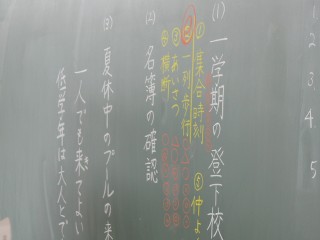 (1) 一学期の登下校
① 集合時刻 ⑤ 仲よ
② 一列歩行
③ あいさつ
④ 横断
(2) 名簿の確認
(3) 夏休中のプールの来
一人でも来てよい
低学年は大人と
1
2
3
4
5